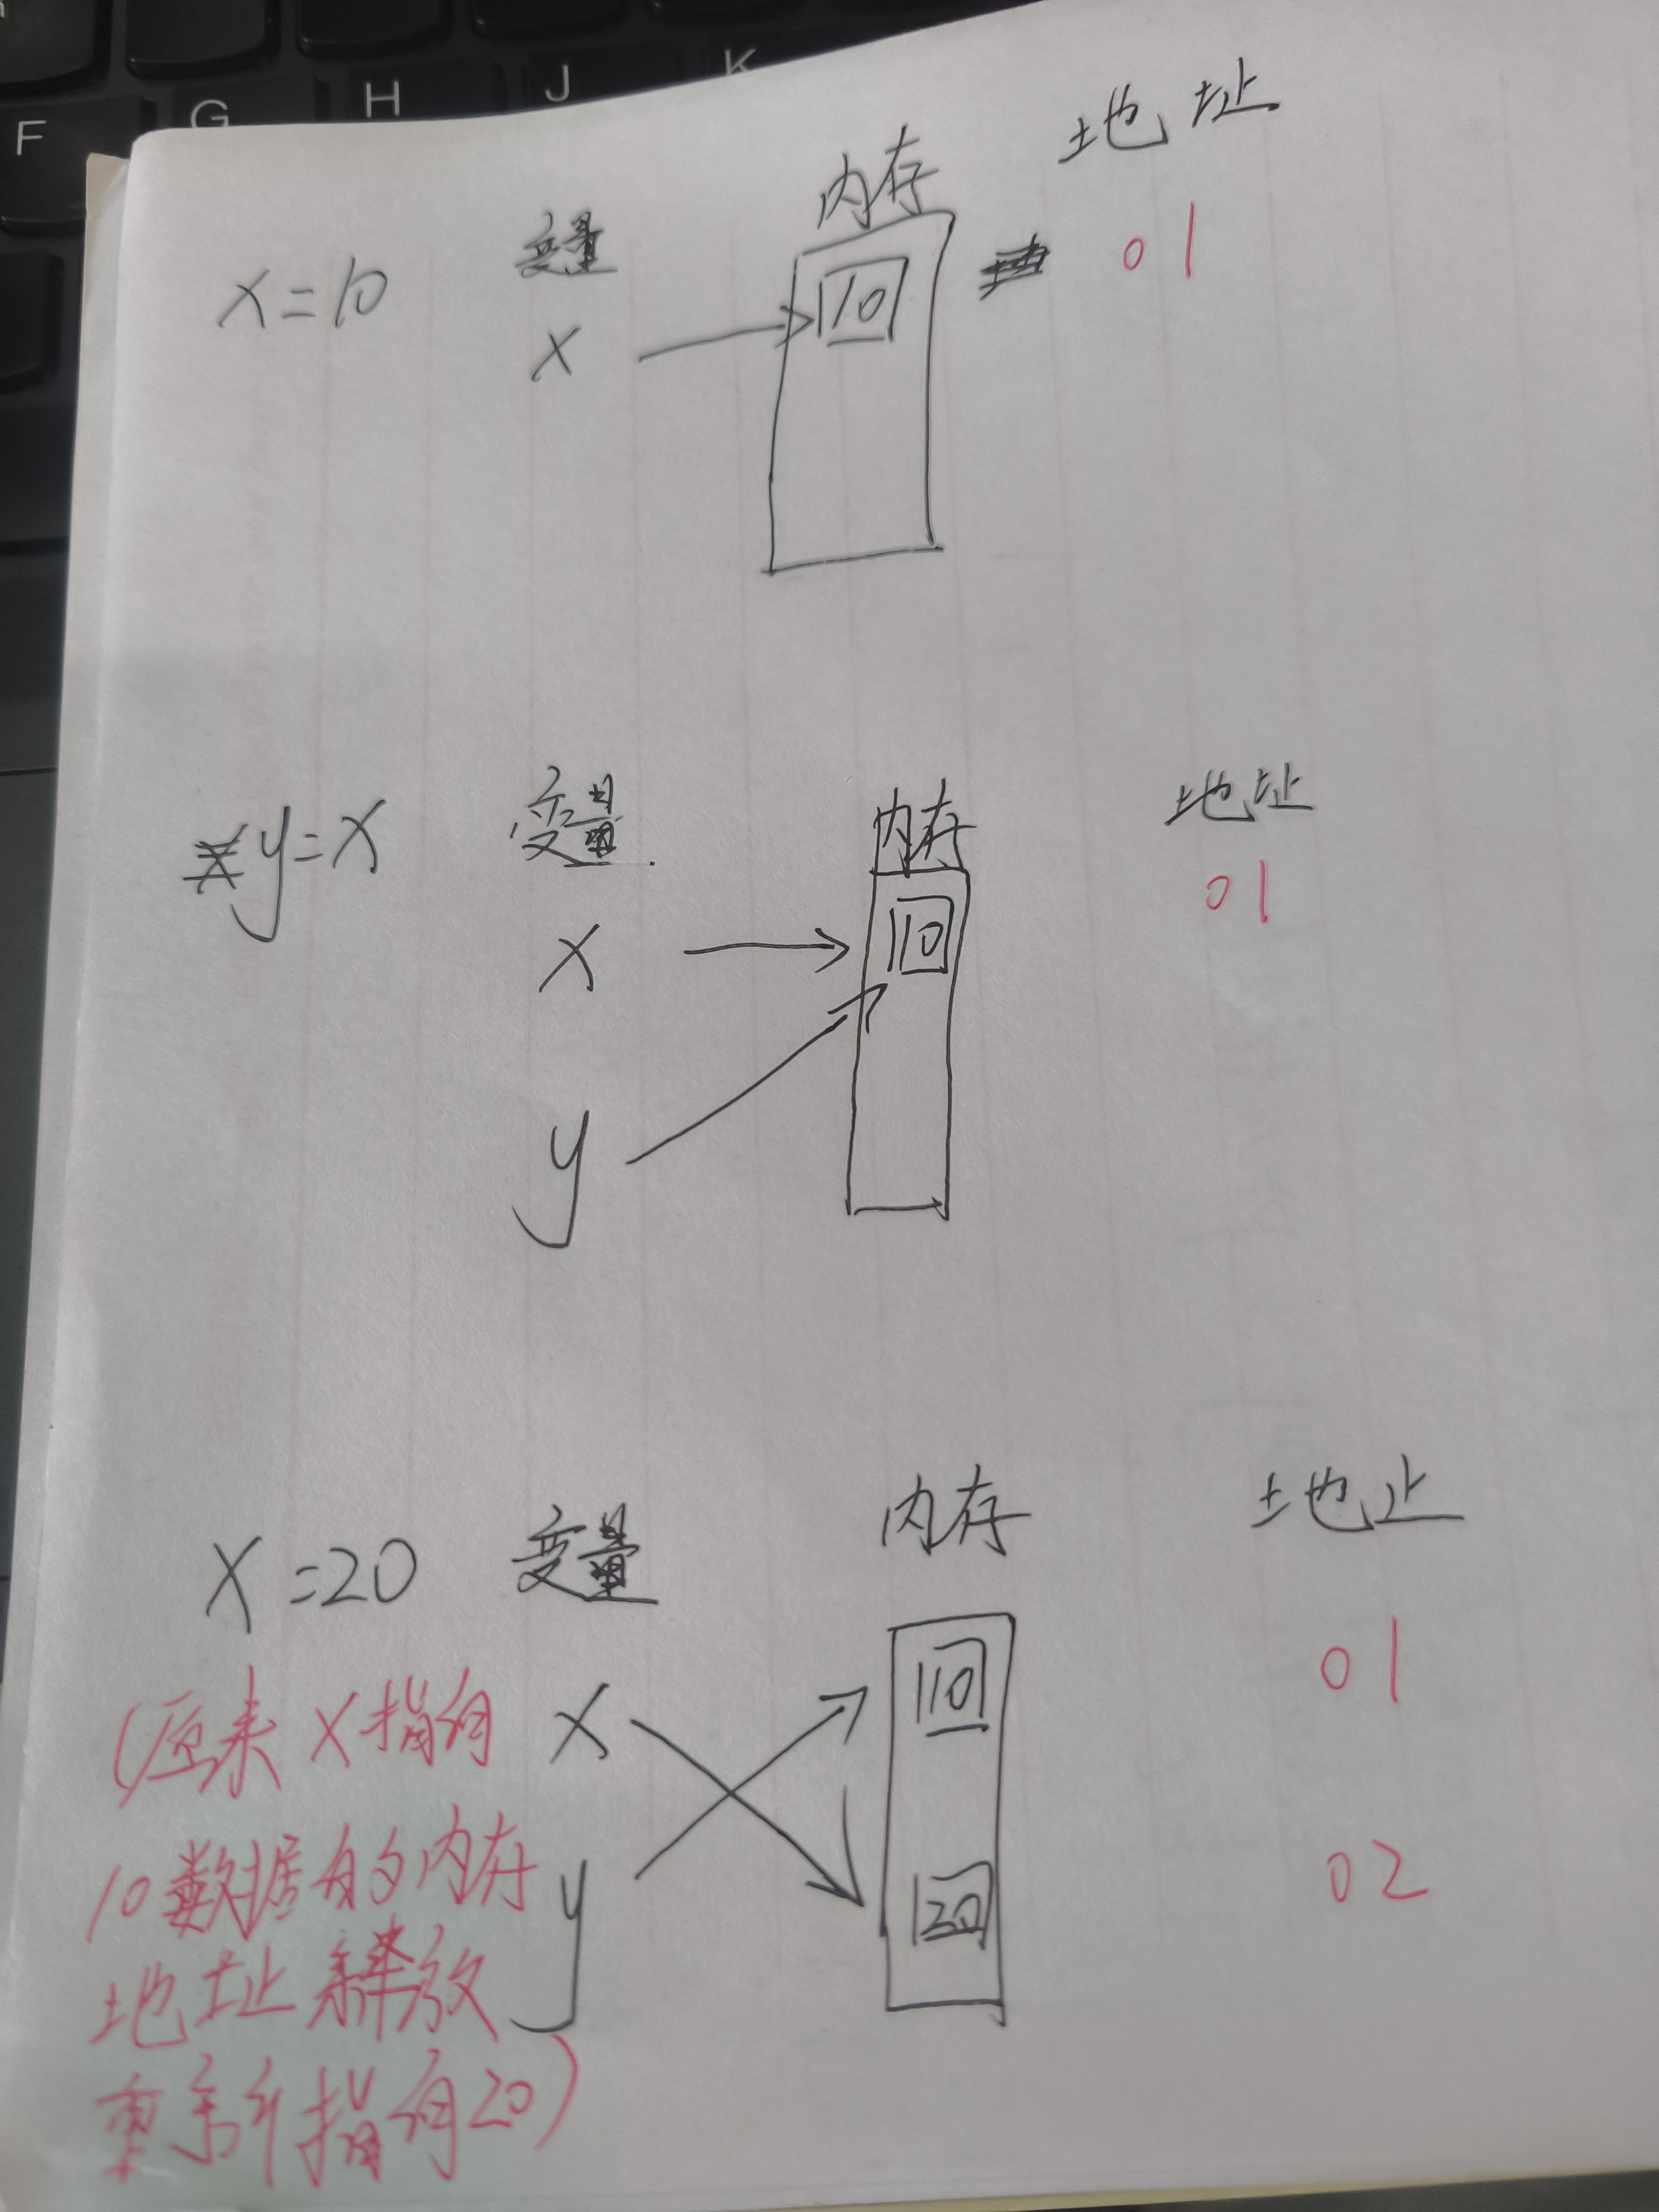 F G H J K
地址
内存
变量
x=10
01
x
10
y=x
变量
内存
地址
01
10
x
y
x=20
变量
内存
地止
(原来x指向
x
10
01
10数据的内存
y
20
02
地址释放
重新指向20)